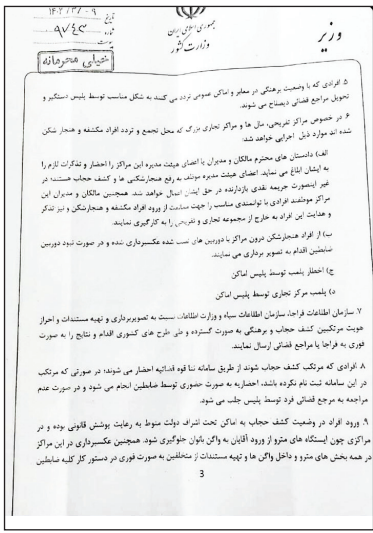 وزیر
جمهوری اسلامی ایران
وزارت کشور
تاریخ ۱۴۰۲/۳/۰۹
شماره ۹۷۴۳
پیوست
خیلی محرمانه
۵ افرادی که با وضعیت برهنگی در معابر و اماکن عمومی تردد می کنند به شکل مناسب توسط پلیس دستگیر و
تحویل مراجع قضائی ذیصلاح می شوند.
۶ در خصوص مراکز تفریحی، مال ها و مراکز تجاری بزرگ که محل تجمع و تردد افراد مکشفه و هنجار شکن
شده اند موارد ذیل اجرایی خواهد شد:
الف) دادستان های محترم مالکان و مدیران یا اعضای هیئت مدیره این مراکز را احضار و تذکرات لازم را
به ایشان ابلاغ می نماید. اعضای هیئت مدیره موظف به رفع هنجارشکنی ها و کشف حجاب هستند؛ در
غیر اینصورت جریمه نقدی بازدارنده در حق ایشان اعمال خواهد شد. همچنین مالکان و مدیران این
مراکز موظفند افرادی با توانمندی مناسب را جهت ممانعت از ورود افراد مکشفه و هنجارشکن و نیز تذکر
و هدایت این افراد به خارج از مجموعه تجاری و تفریحی را به کارگیری نمایند.
ب) از افراد هنجارشکن درون مراکز با دوربین های نصب شده عکسبرداری شده و در صورت نبود دوربین
ضابطین اقدام به تصویر برداری می نمایند.
ج) اخطار پلمب توسط پلیس اماکن
د) پلمب مرکز تجاری توسط پلیس اماکن
۷. سازمان اطلاعات فراجا، سازمان اطلاعات سپاه و وزارت اطلاعات نسبت به تصویربرداری و تهیه مستندات و احراز
هویت مرتکبین کشف حجاب و برهنگی به صورت گسترده و طی طرح های کشوری اقدام و نتایج را به صورت
فوری به فراجا یا مراجع قضائی ارسال نمایند.
۸ افرادی که مرتکب کشف حجاب شوند از طریق سامانه ثنا قوه قضائیه احضار می شوند؛ در صورتی که مرتکب
در این سامانه ثبت نام نکرده باشد، احضاریه به صورت حضوری توسط ضابطین انجام می شود و در صورت عدم
مراجعه به مرجع قضائی فرد توسط پلیس جلب می شود.
۹. ورود افراد در وضعیت کشف حجاب به اماکن تحت اشراف دولت منوط به رعایت پوشش قانونی بوده و در
مراکزی چون ایستگاه های مترو از ورود آقایان به واگن بانوان جلوگیری شود. همچنین عکسبرداری در این مراکز
در همه بخش های مترو و داخل واگن ها و تهیه مستندات از متخلفین به صورت فوری در دستور کار کلیه ضابطین
3